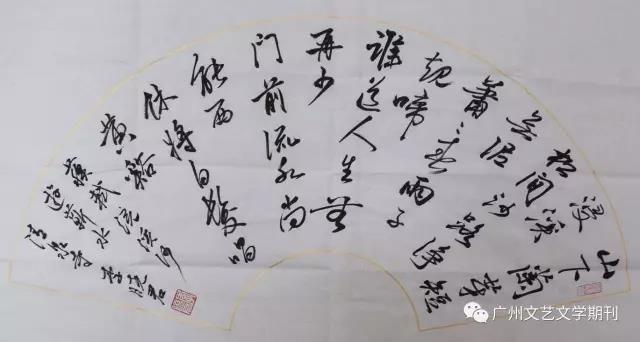 山下蘭芽短
浸溪
松間沙路净
无泥
蕭〻暮雨子
規啼
誰道人生無
再少
門前流水尚
能西
休將白髮唱
黄雞
浣溪沙
蘇軾
遊蘄水
清泉寺
广州文艺文学期刊